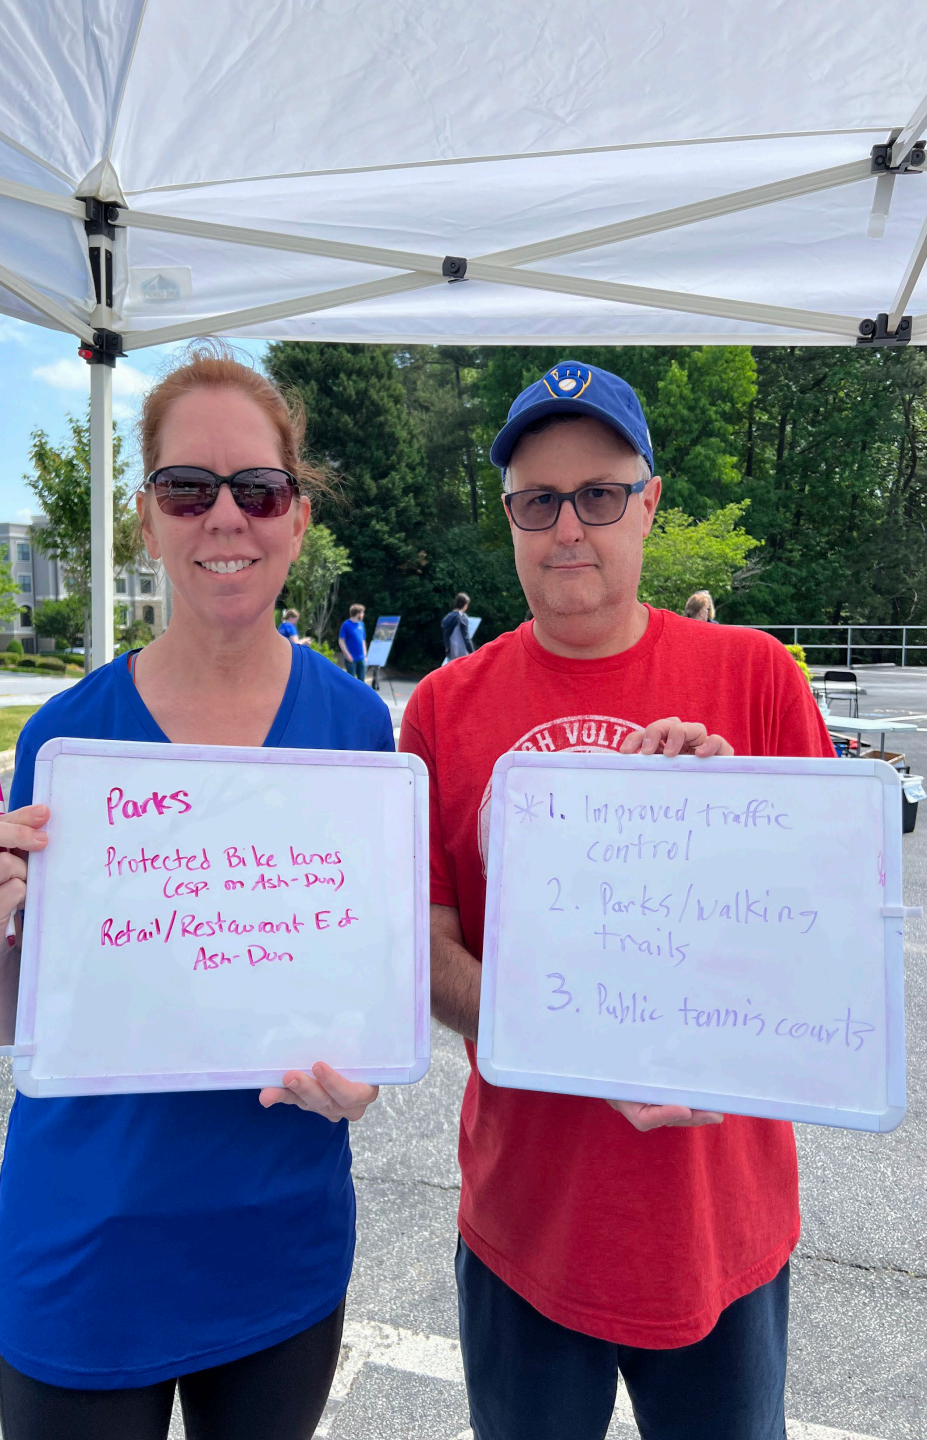 Parks
Protected Bike lanes
(esp. on Ash-Dun)
Retail/Restaurant E of
Ash-Dun
GH VOLT
*1. Improved traffic
control
2. Parks/walking
trails
3. Public tennis courts